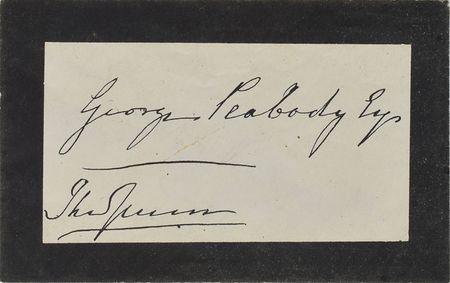 George Peabody Esq
The Queen